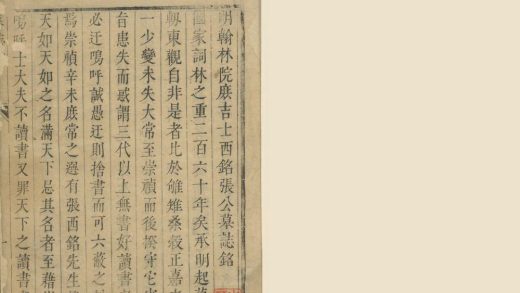 明翰林院庶吉士西銘張公墓誌銘
國家詞林之重二百六十年矣承明起草
東觀自非是者比於雊雉桑穀正嘉
一少變未失大常至崇禎而後深守它
旨患失而惑謂三代以上無書好讀書
必迂嗚呼誠愚迂則捨書而可六藏之
焉崇禎辛未庶常之選有張西銘先生
天如天如之名滿天下忌其名者至藉
嗚呼士大夫不讀書又罪天下之讀書